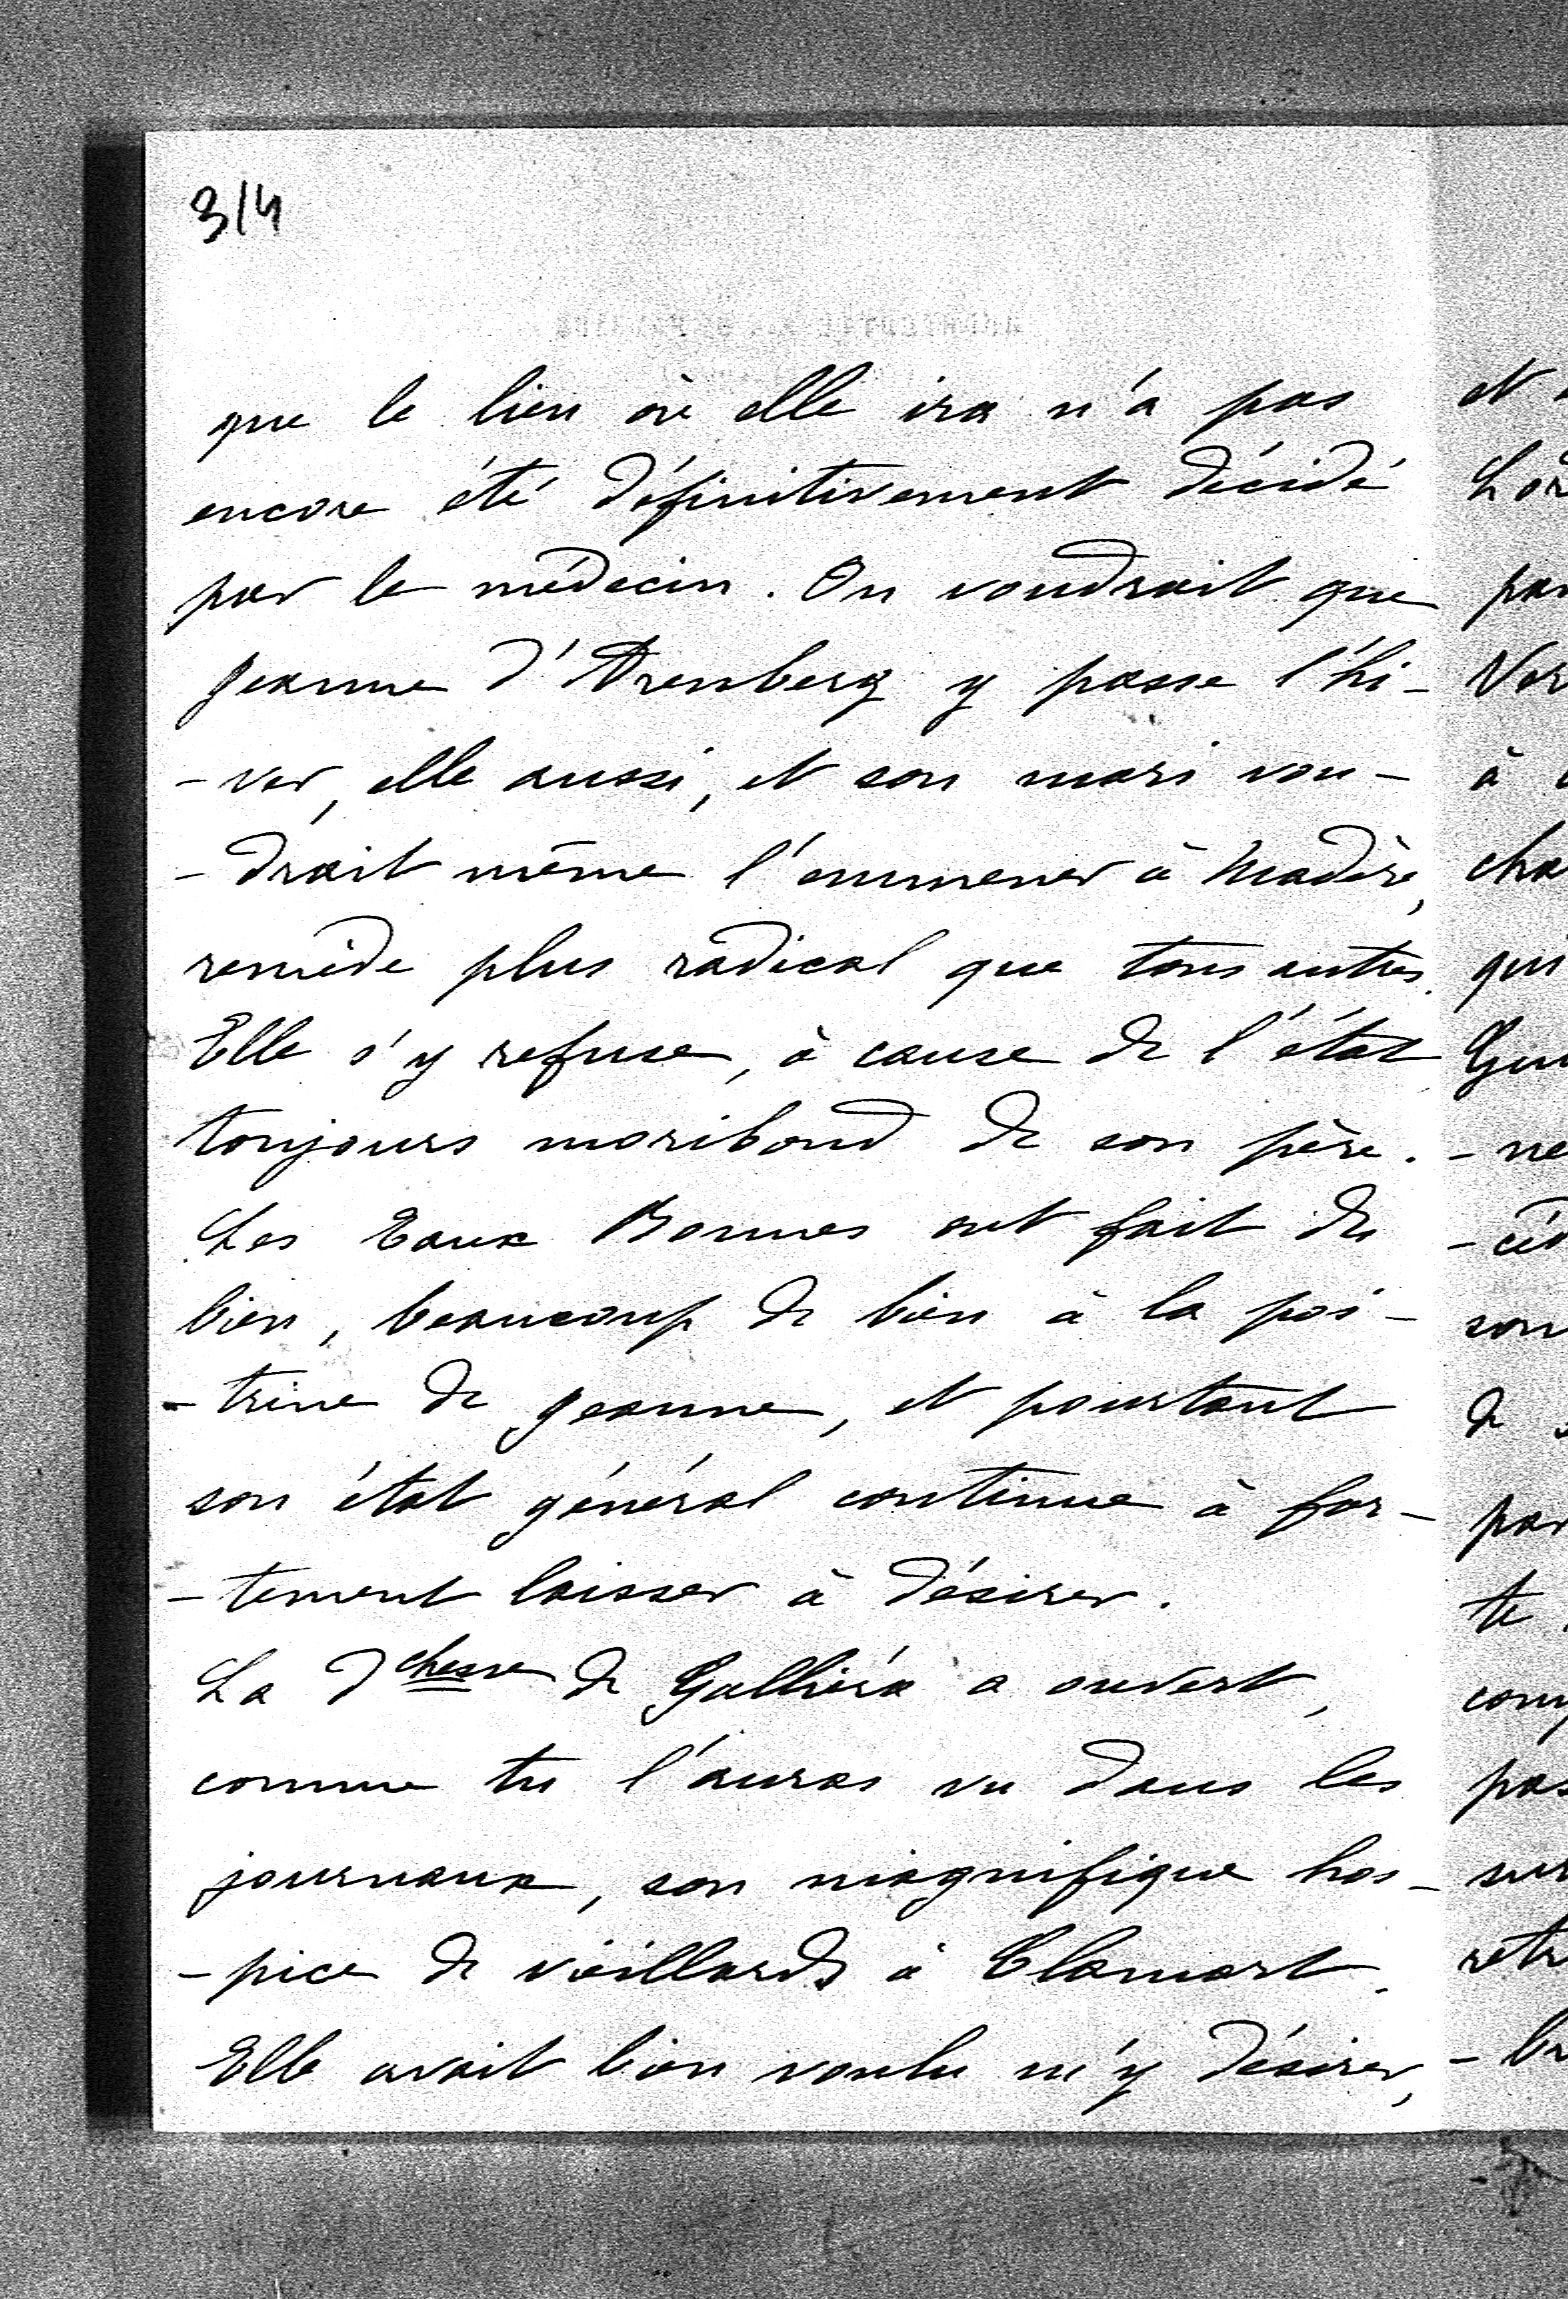 3/4
que le lieu où elle ira n'a pas
encore été définitivement décidé
par le médecin. On voudrait que
Jeanne d'Arenberg y passe l'hi-
-ver, elle aussi, et son mari vou-
-drait même l'emmener à Madère,
remède plus radical que tous autres.
Elle s'y refuse, à cause de l'état
toujours moribond de son père.
Les Eaux Bonnes ont fait du
bien, beaucoup de bien à la poi-
-trine de Jeanne, et pourtant
son état général continue à for-
-tement laisser à désirer.
La Dchesse de Galliéra a ouvert,
comme tu l'auras vu dans les
journaux, son magnifique hos-
-pice de vieillards à Clamart.
Elle avait bien voulu m'y désirer,
et
Lor
par
Ver
à
cha
qui
Gui
-ne
-céd
son
de
par
te
com
pas
sur
retr